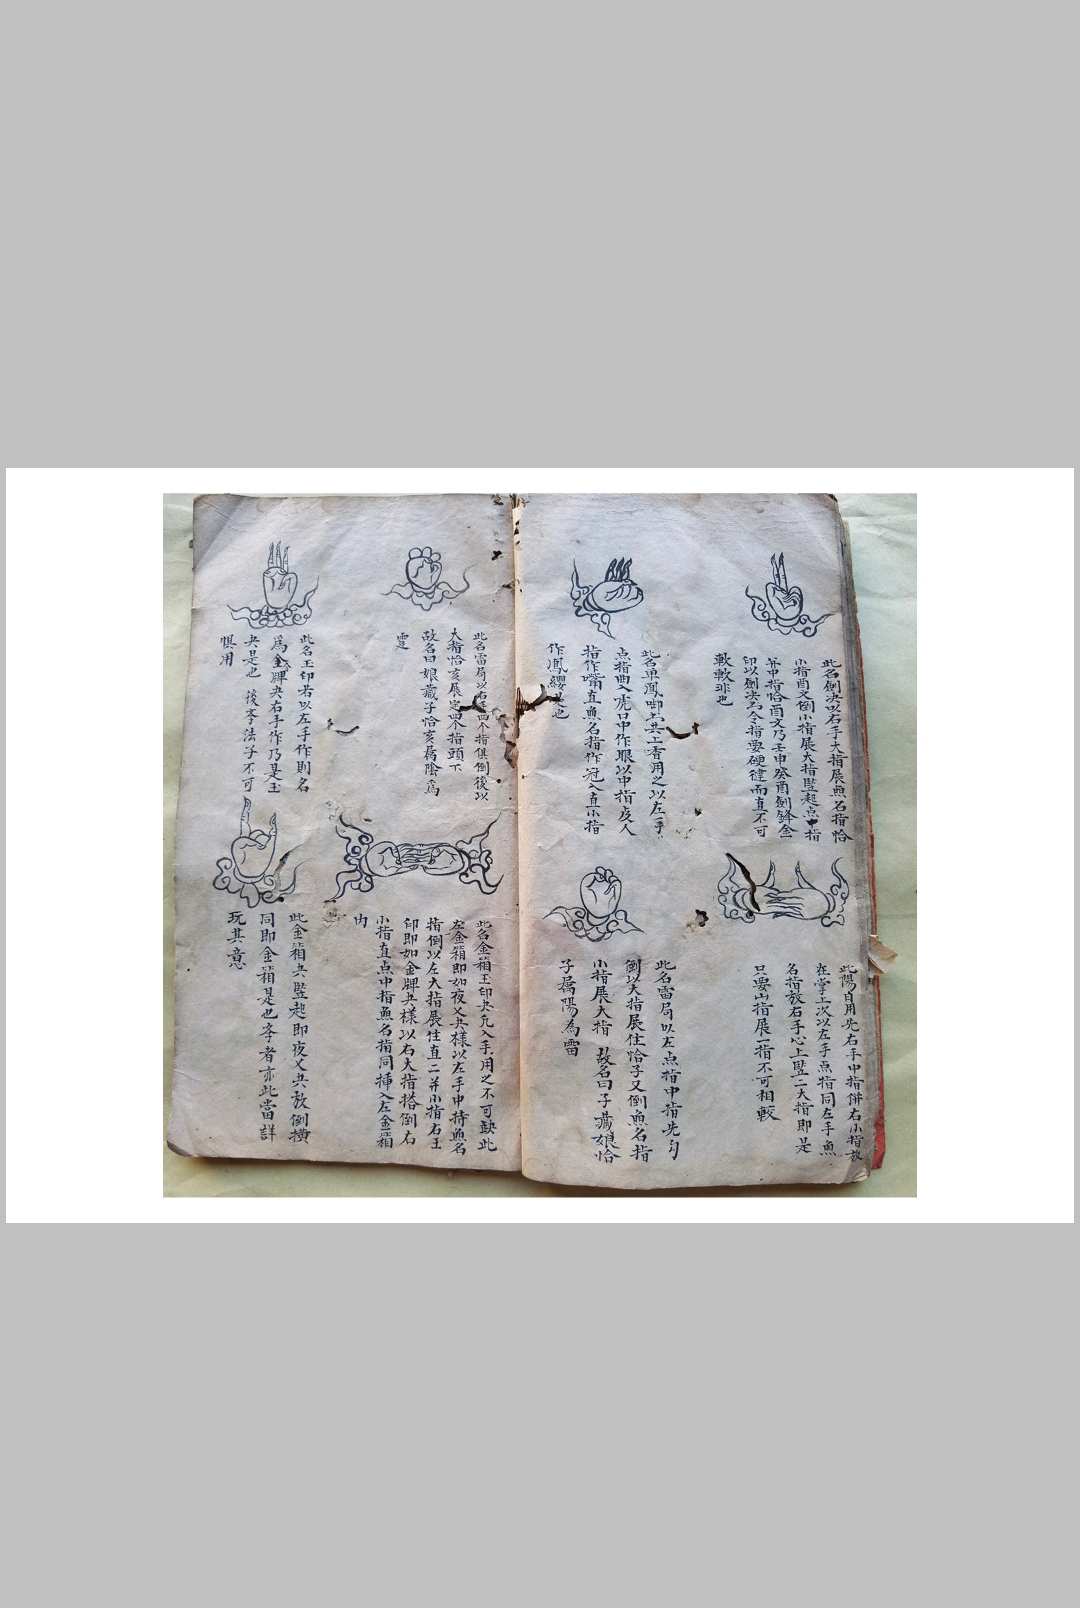 此名劍决以右手大指展無名指恰
小指酉文倒小指展大指豎起点中指
并中指恰酉文乃壬申癸酉劍鋒金
印以劍决为令指要硬健而直不可
軟軟非也
此名單鳳啣上共上香用之以左手
点指曲入虎口中作眼以中指
指作嘴直無名指作冠入直小指
作鳳纓是也
此陽自用先右手中指併右小指放
在掌上次以左手点指同左手無
名指放右手心上豎二大指即是
只要山指展一指不可相較
此名雷局以左点指中指先勾
倒以大指展住恰子又倒無名指
小指展大指 故名曰子藏娘恰
子属陽為雷
此名雷局以右手四个指俱倒後以
大指恰亥展定四个指頭下
故名曰娘藏子恰亥属陰為
雷
此名玉印若以左手作則名
為金牌决右手作乃是玉
决是也 後孝法子不可
惧用
此名金箱玉印决凢入手用之不可缺此
左金箱即如夜乂决様以左手中持無名
指倒以左大指展住直二并小指右玉
印即如金牌决様以右大指搭倒右
小指直点中指無名指同挿入左金箱
内
此金箱共豎起即夜乂共放倒横
同即金箱是也孝者亦此當詳
玩其意